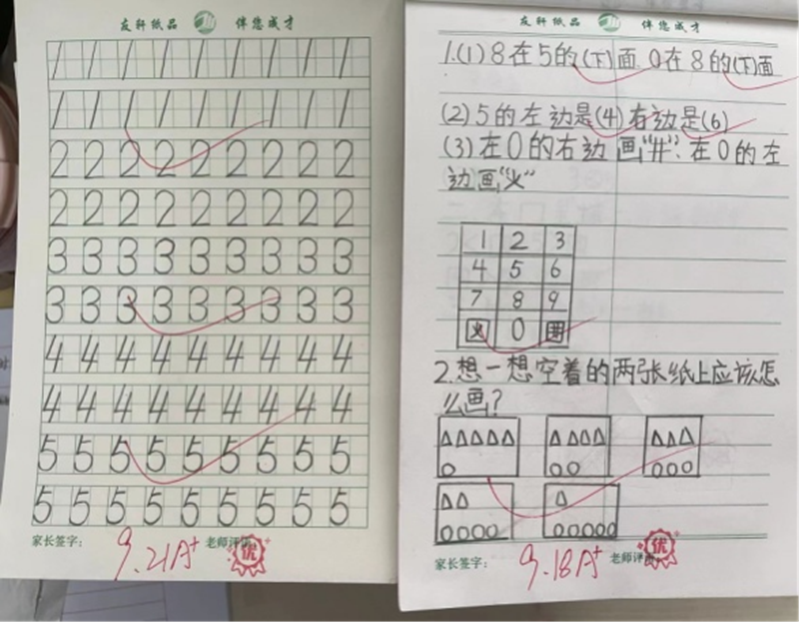 友轩纸品 伴您成才
1 1 1 1 1 1 1 1 1
1 1 1 1 1 1 1 1 1
2 2 2 2 2 2 2 2 2
2 2 2 2 2 2 2 2 2
3 3 3 3 3 3 3 3 3
3 3 3 3 3 3 3 3 3
4 4 4 4 4 4 4 4 4
4 4 4 4 4 4 4 4 4
5 5 5 5 5 5 5 5 5
5 5 5 5 5 5 5 5 5
家长签字: 9.21A+ 老师评语: 优
友轩纸品 伴您成才
1.(1)8在5的(下)面.0在8的(下)面
(2)5的左边是(4)右边是(6)
(3)在0的右边画"#".在0的左
边画"*"
1 2 3
4 5 6
7 8 9
* 0 #
2.想一想空着的两张纸上应该怎
么画?
家长签字: 9.18A+ 老师评语: 优